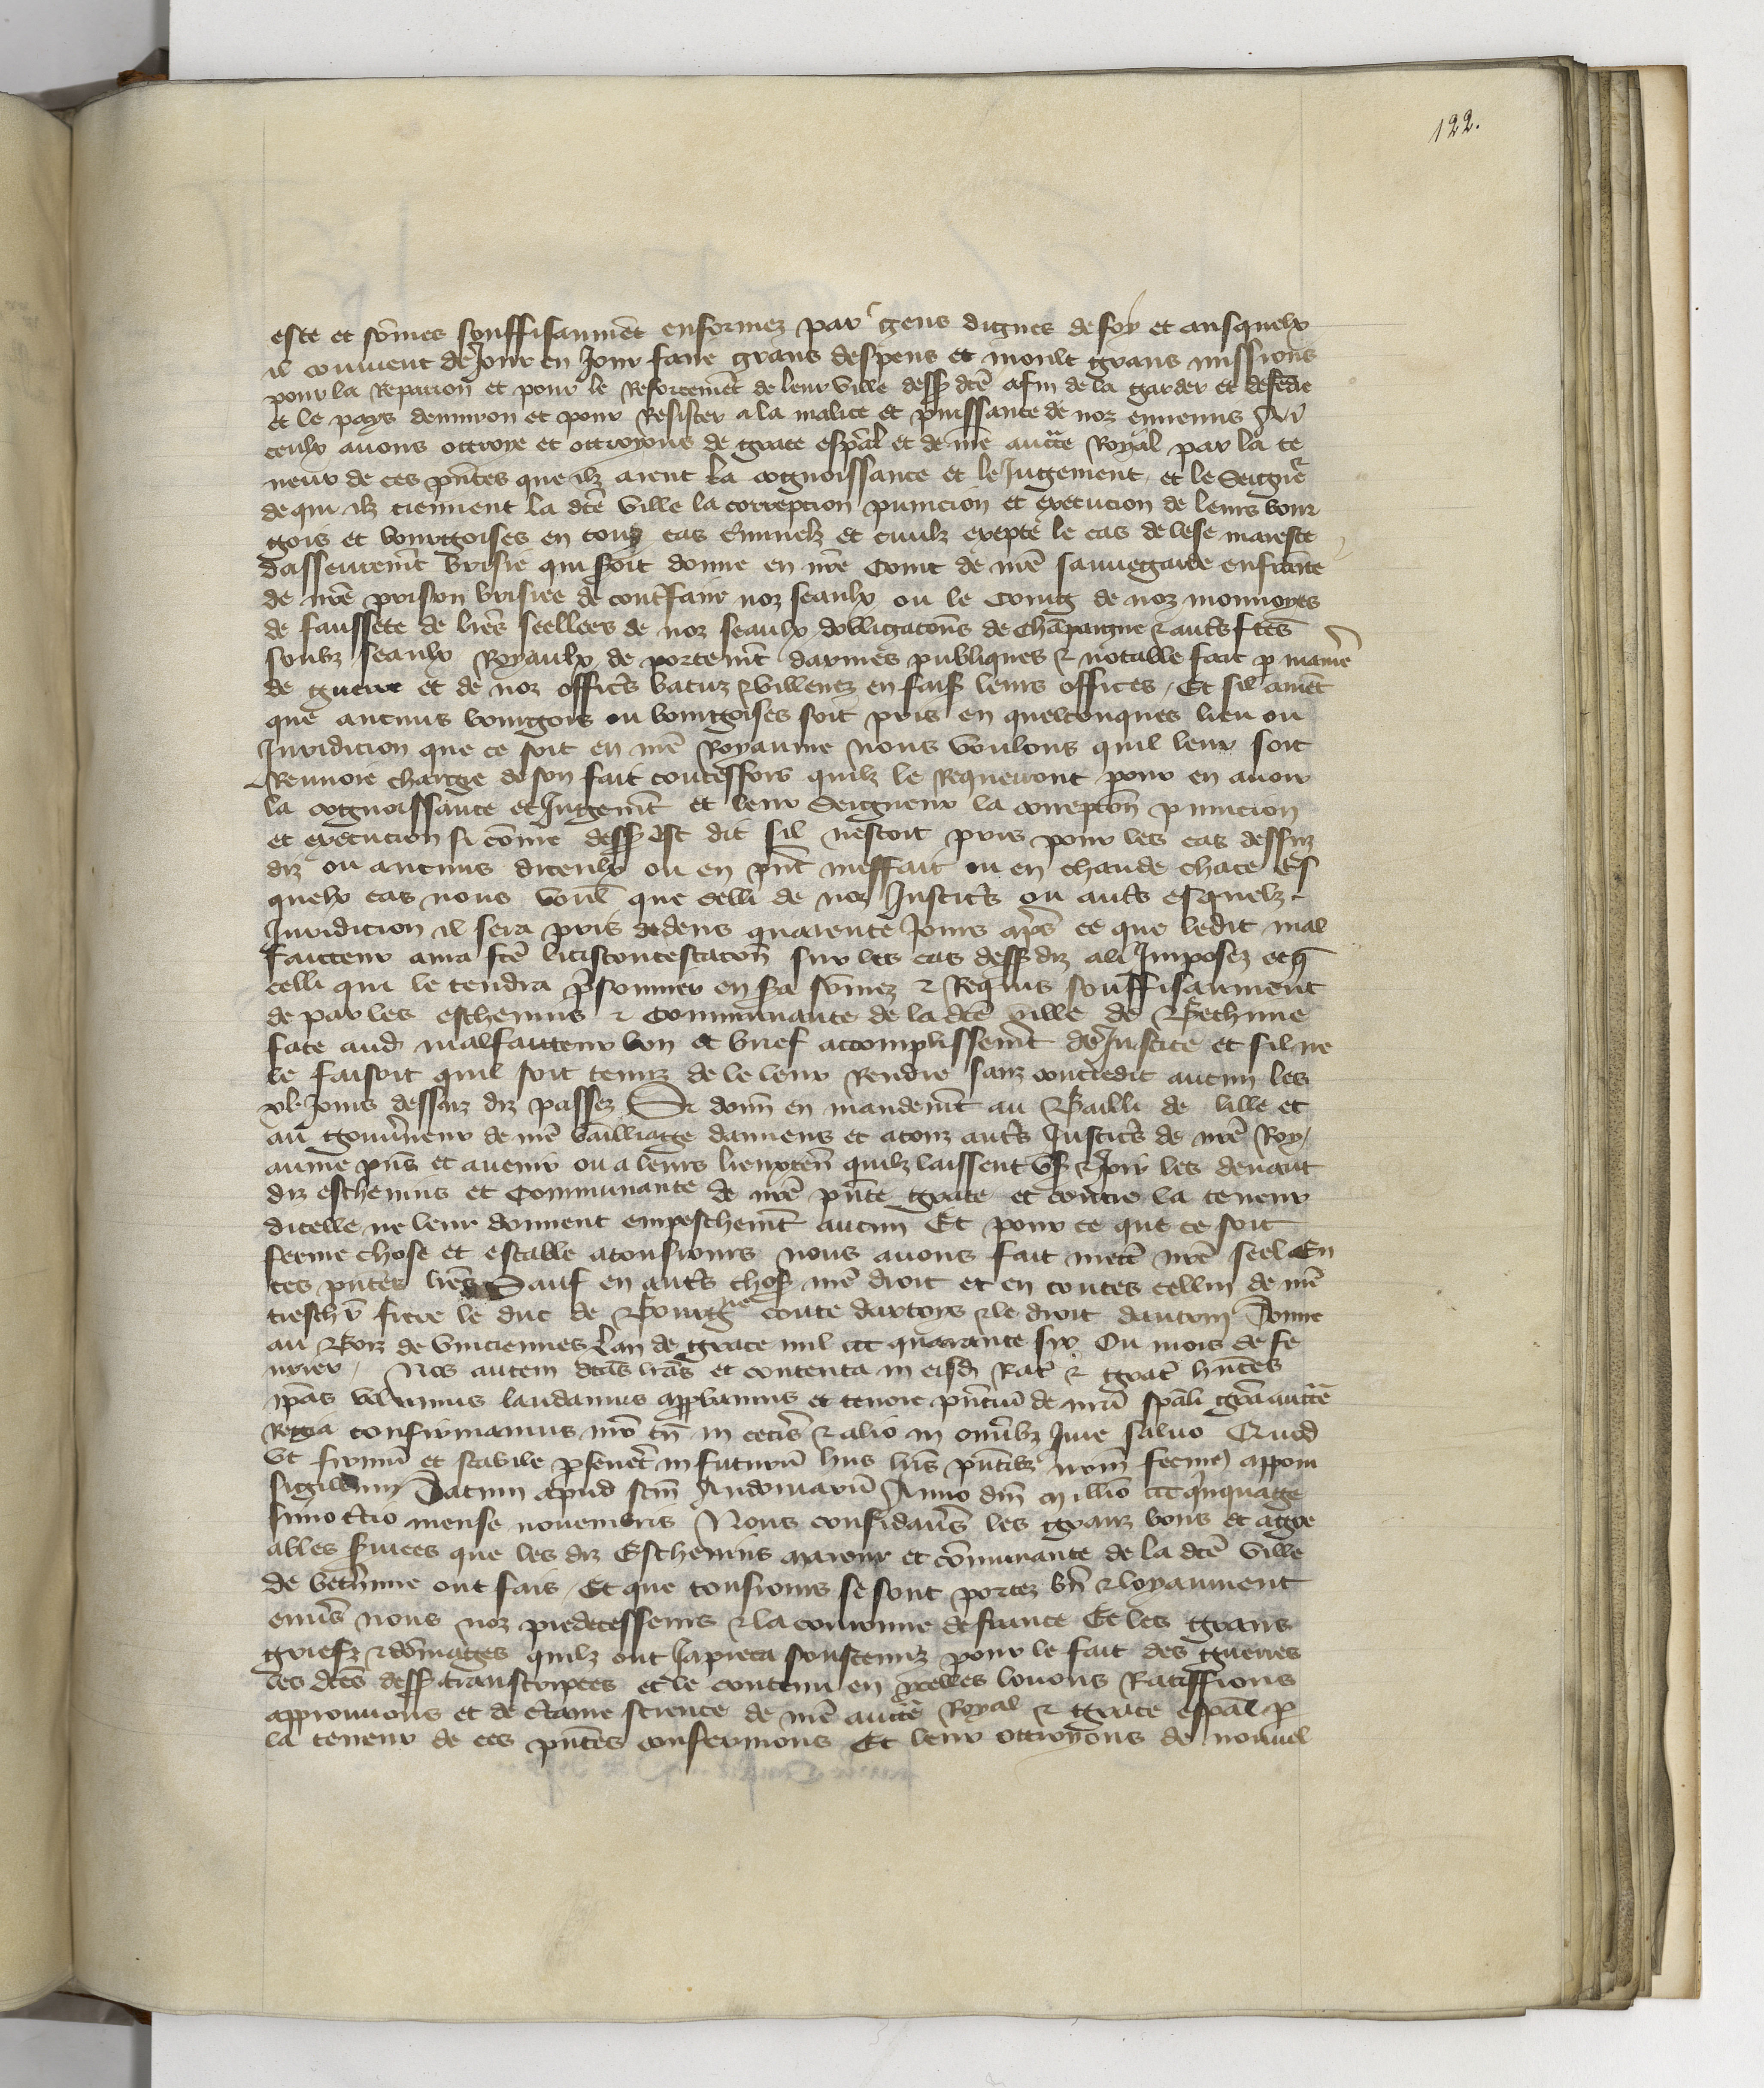 122.
este et sõmes souffisanmẽt enformez par gens dignes de foy et ausquelx
il conuient de Jour en Jour faire grans despens et moult grans missions
pour la Repacion et pour le Reforcemẽt de leur ville dess dcẽ afin de la garder et defẽdre
et le pays denuiron et pour Resister a la malice et puissance de noz ennemis A
ceulx auons ottroye et ottroyons de grace espãl et de nrẽ auctẽ Royal par la te
neur de ces pñtes que ilz aient la cognoissance et le Jugement et le Seignr̃
de qui ilz tiennent la dcẽ ville la correpcion punicion et execucion de leurs bour
gois et bourgoises en touz cas cr̃iminelz et ciuilz excepte le cas de lese maieste
dasseuremt̃ brisie qui soit donne en nrẽ Court de nrẽ sauuegarde enfrainte
de nrẽ prison brisiee de contrefair̃ noz seaulx ou le Coing de noz monnoyes
de faussete de lrẽs seellees de noz seaulx dobligacoñs de Chãpaigne & autrs̃ ftẽs
soubz seaulx Royaulx de portemt̃ darmes publiques & notable fait p maniẽ
de guerre et de noz officrs̃ batuz & villenez en fais̃ leurs offices Et sil auiẽt
que aucuns bourgois ou bourgoises soit pris en quelconques lieu ou
Juridicion que ce soit en nrẽ Royaume nous voulons quil leur soit
Renuoie charge de son fait toutesfois quilz le Requerront pour en auoir
la cognoissance et Jugemt̃ et leur Seigneur la correpcoñ punicion
et execucion si cõme dess est dit sil nestoit pris pour les cas dessuz
diz ou aucuns diceulx ou en pñt meffait ou en chaude chace Es
quelx cas nous voulõ que celli de noz Justicrs̃ ou autrs̃ esquelz
Juridicion il sera pris dedens quarente Jours aprs̃ ce que ledit mal
faicteur aura ftẽ litiscontestacoñ sur les cas dess diz a li Imposez et q̃
celli qui le tendra prisonnier en sa sõmez & Requis souffisanment
de par les escheuins & Communaute de la dcẽ ville de Bethune
face aud malfaiteur bon et brief accomplissemt̃ de Justice et sil ne
le faisoit quil soit tenuz de le leur Rendre sanz contredit aucun les
xl Jours dessuz diz passez Si donñ en mandemt̃ au Bailli de lille et
au gouurneur de nrẽ bailliage damiens et atouz autrs̃ Justicrs̃ de nrẽ Roy
aume pñs et auenir ou a leurs lieuxteñ quilz laissent vs̃ & Joir les deuant
diz escheuins et Communaute de nrẽ pñte grace et contre la teneur
dicelle ne leur donnent empeschemt̃ aucun Et pour ce que ce soit
ferme chose et estable atousiours nous auons fait mettẽ nrẽ seel En
ces pñtes lrẽs Sauf en autrs̃ chos̃ nrẽ droit et en toutes cellui de nrẽ
treschr̃ frere le duc de Bourg^ne conte dartoys & le droit dautrui Donne
au Boiz de vinciennes Lan de grace mil ccc quarante six Ou mois de fe
urier / Nos autem dcãs lrãs et contenta in eisd̃ Rat̃ & grat̃ hñtes
ip̃as volumus laudamus approbamus et tenore pñtiũ de nrã spãli grã auctẽ
Regia confirmamus nrõ tñ in cetrĩs & alio in omĩbz Jure saluo Quod
Ut firmũ et stabile perseuẽt in futurũ hiis lrĩs pñtibz nrm̃ fecim9 apponi
sigillum Datum apud sctm̃ Audomarũ Anno dñi millõ ccc quiquage
simo tc̃io mense nouembris Nous considerans̃ les granz bons et agre
ables Seruices que les diz Escheuins maieur et cõmunaute de la dcẽ ville
de bethune ont fais Et que tousiours se sont portez bñ & loyaument
enuers̃ nous noz predecesseurs & la couronne de france Et les grans
griefz & dõmages quilz ont Japieca soustenuz pour le fait des guerres
les dcẽs dess transcriptes et le contenu en ycelles louons Ratiffions
approuuons et de certaine science de nrẽ auctẽ Royal & grace espãl p
la teneur de ces pñtes confermons Et leur ottroyons de nouuel